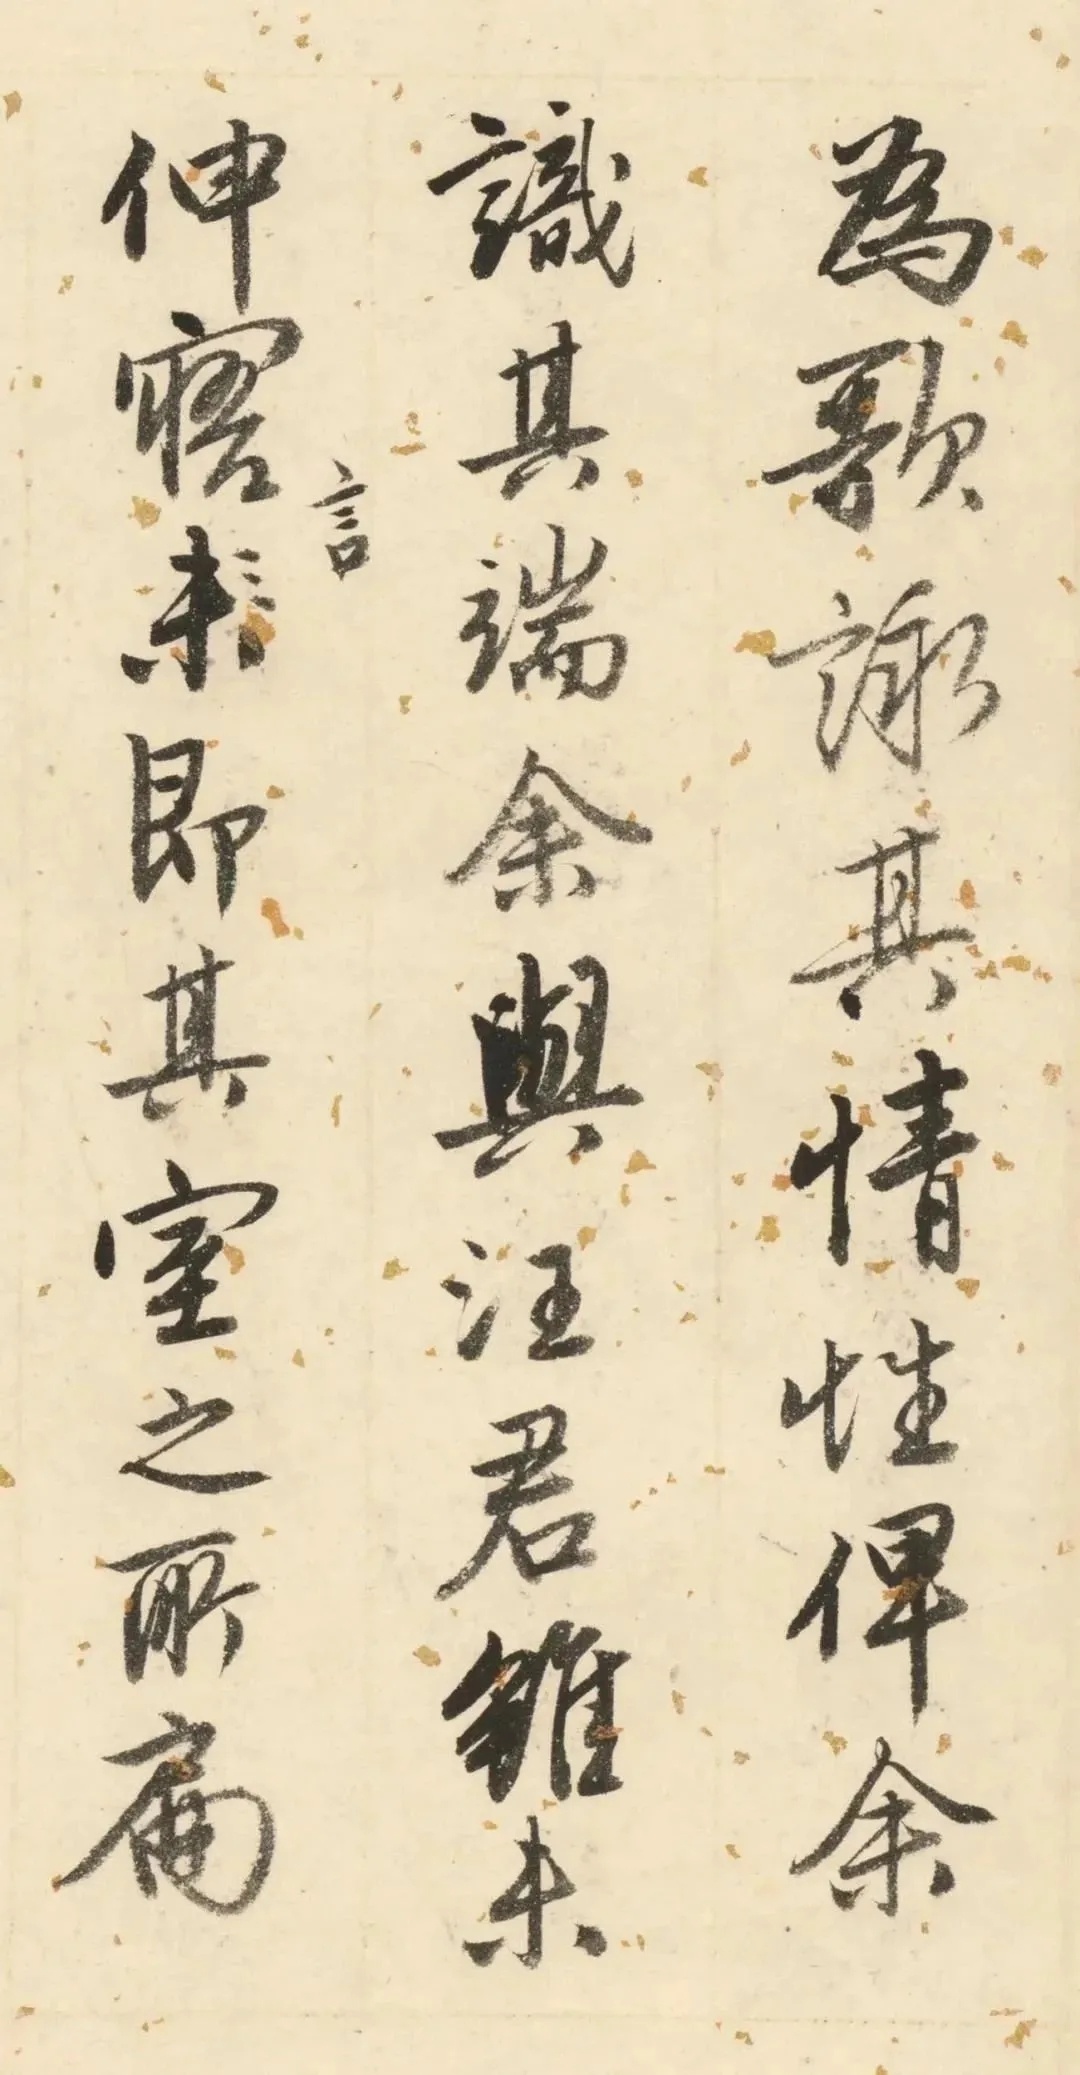 為歌詠其情性俾余
識其端余與汪君雖未
伸寤言即其室之所扁